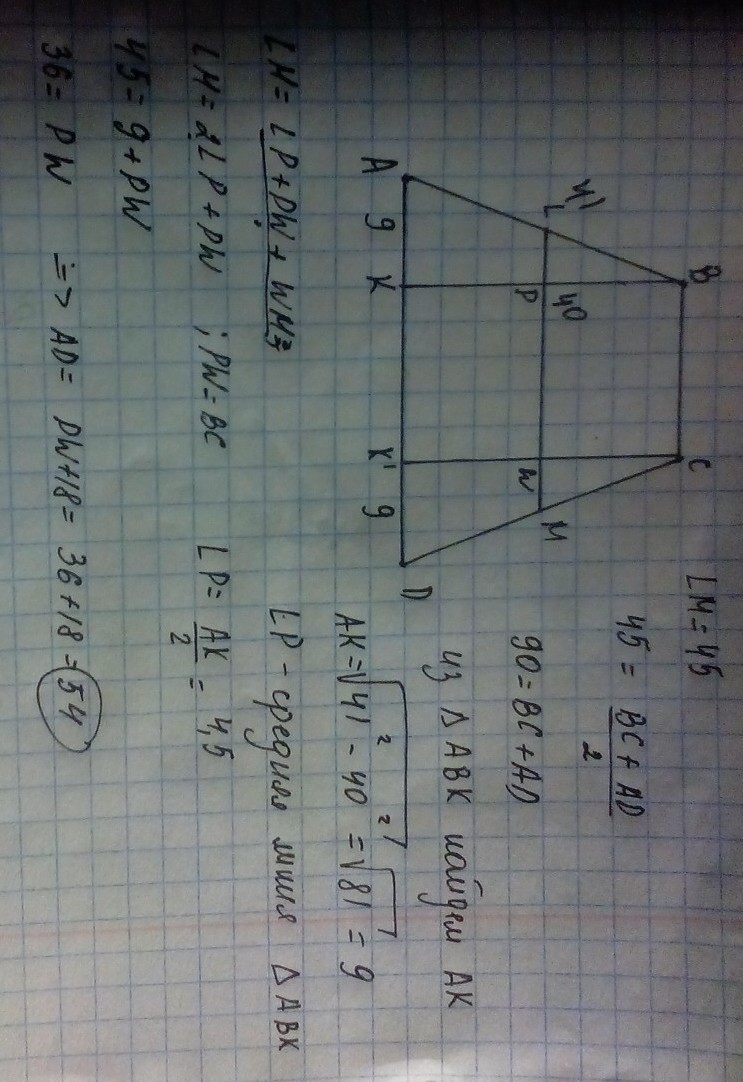 LM = 45
B C
45 = BC + AD / 2
41 L 40
P W M
90 = BC + AD
A 9 K K' 9 D
из Δ ABK найдем AK
AK = √41² - 40² = √81 = 9
LM = LP + PW + WM =
LP - средняя линия Δ ABK
LM = 2LP + PW ; PW = BC LP = AK / 2 = 4,5
45 = 9 + PW
36 = PW => AD = PW + 18 = 36 + 18 = 54